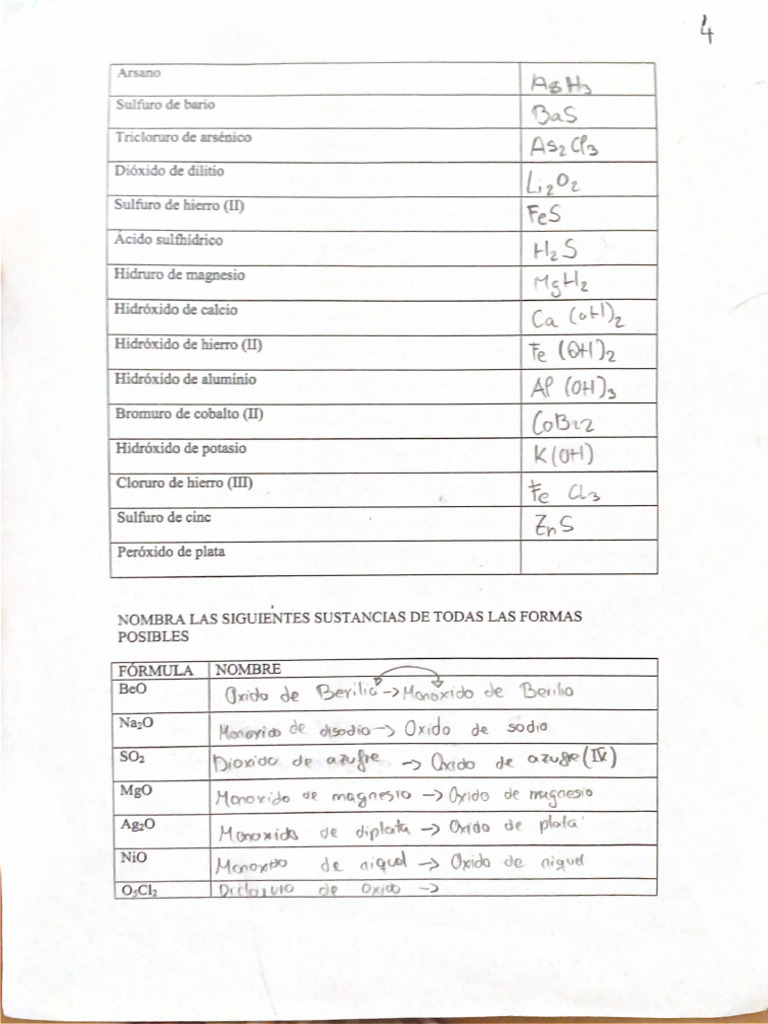 4
Arsano AsH3
Sulfuro de bario BaS
Tricloruro de arsénico As2Cl3
Dióxido de dilitio Li2O2
Sulfuro de hierro (II) FeS
Ácido sulfhídrico H2S
Hidruro de magnesio MgH2
Hidróxido de calcio Ca (OH)2
Hidróxido de hierro (II) Fe (OH)2
Hidróxido de aluminio Al (OH)3
Bromuro de cobalto (II) CoBr2
Hidróxido de potasio K(OH)
Cloruro de hierro (III) Fe Cl3
Sulfuro de cinc ZnS
Peróxido de plata
NOMBRA LAS SIGUIENTES SUSTANCIAS DE TODAS LAS FORMAS
POSIBLES
FÓRMULA NOMBRE
BeO Oxido de Berilio → Monoxido de Berilio
Na2O Monoxido de disodio → Oxido de sodio
SO2 Dioxido de azufre → Oxido de azufre (IV)
MgO Monoxido de magnesio → Oxido de magnesio
Ag2O Monoxido de diplata → Oxido de plata
NiO Monoxido de niquel → Oxido de niquel
O5Cl2 Dicloruro de Oxido →